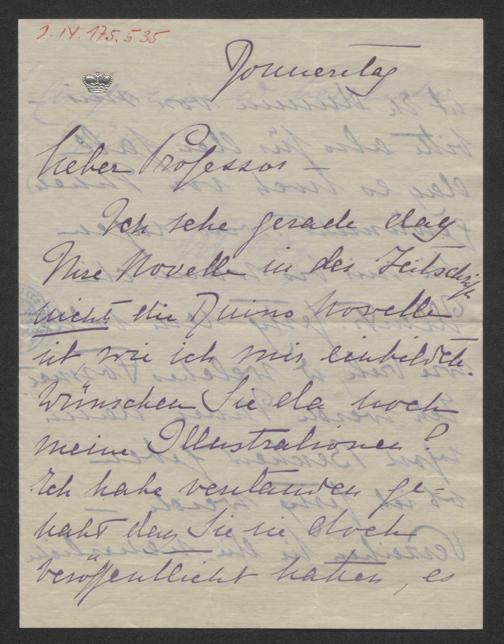 I.N. 175.535
Donnerstag
lieber Professor
Ich sehe gerade dass
Ihre Novelle in der Zeitschrift
nicht die Duino Novelle
ist wie ich mir einbildete.
Wünschen Sie da noch
meine Illustrationen?
Ich habe verstanden ge=
habt dass Sie sie doch
veröffentlicht hatten, es